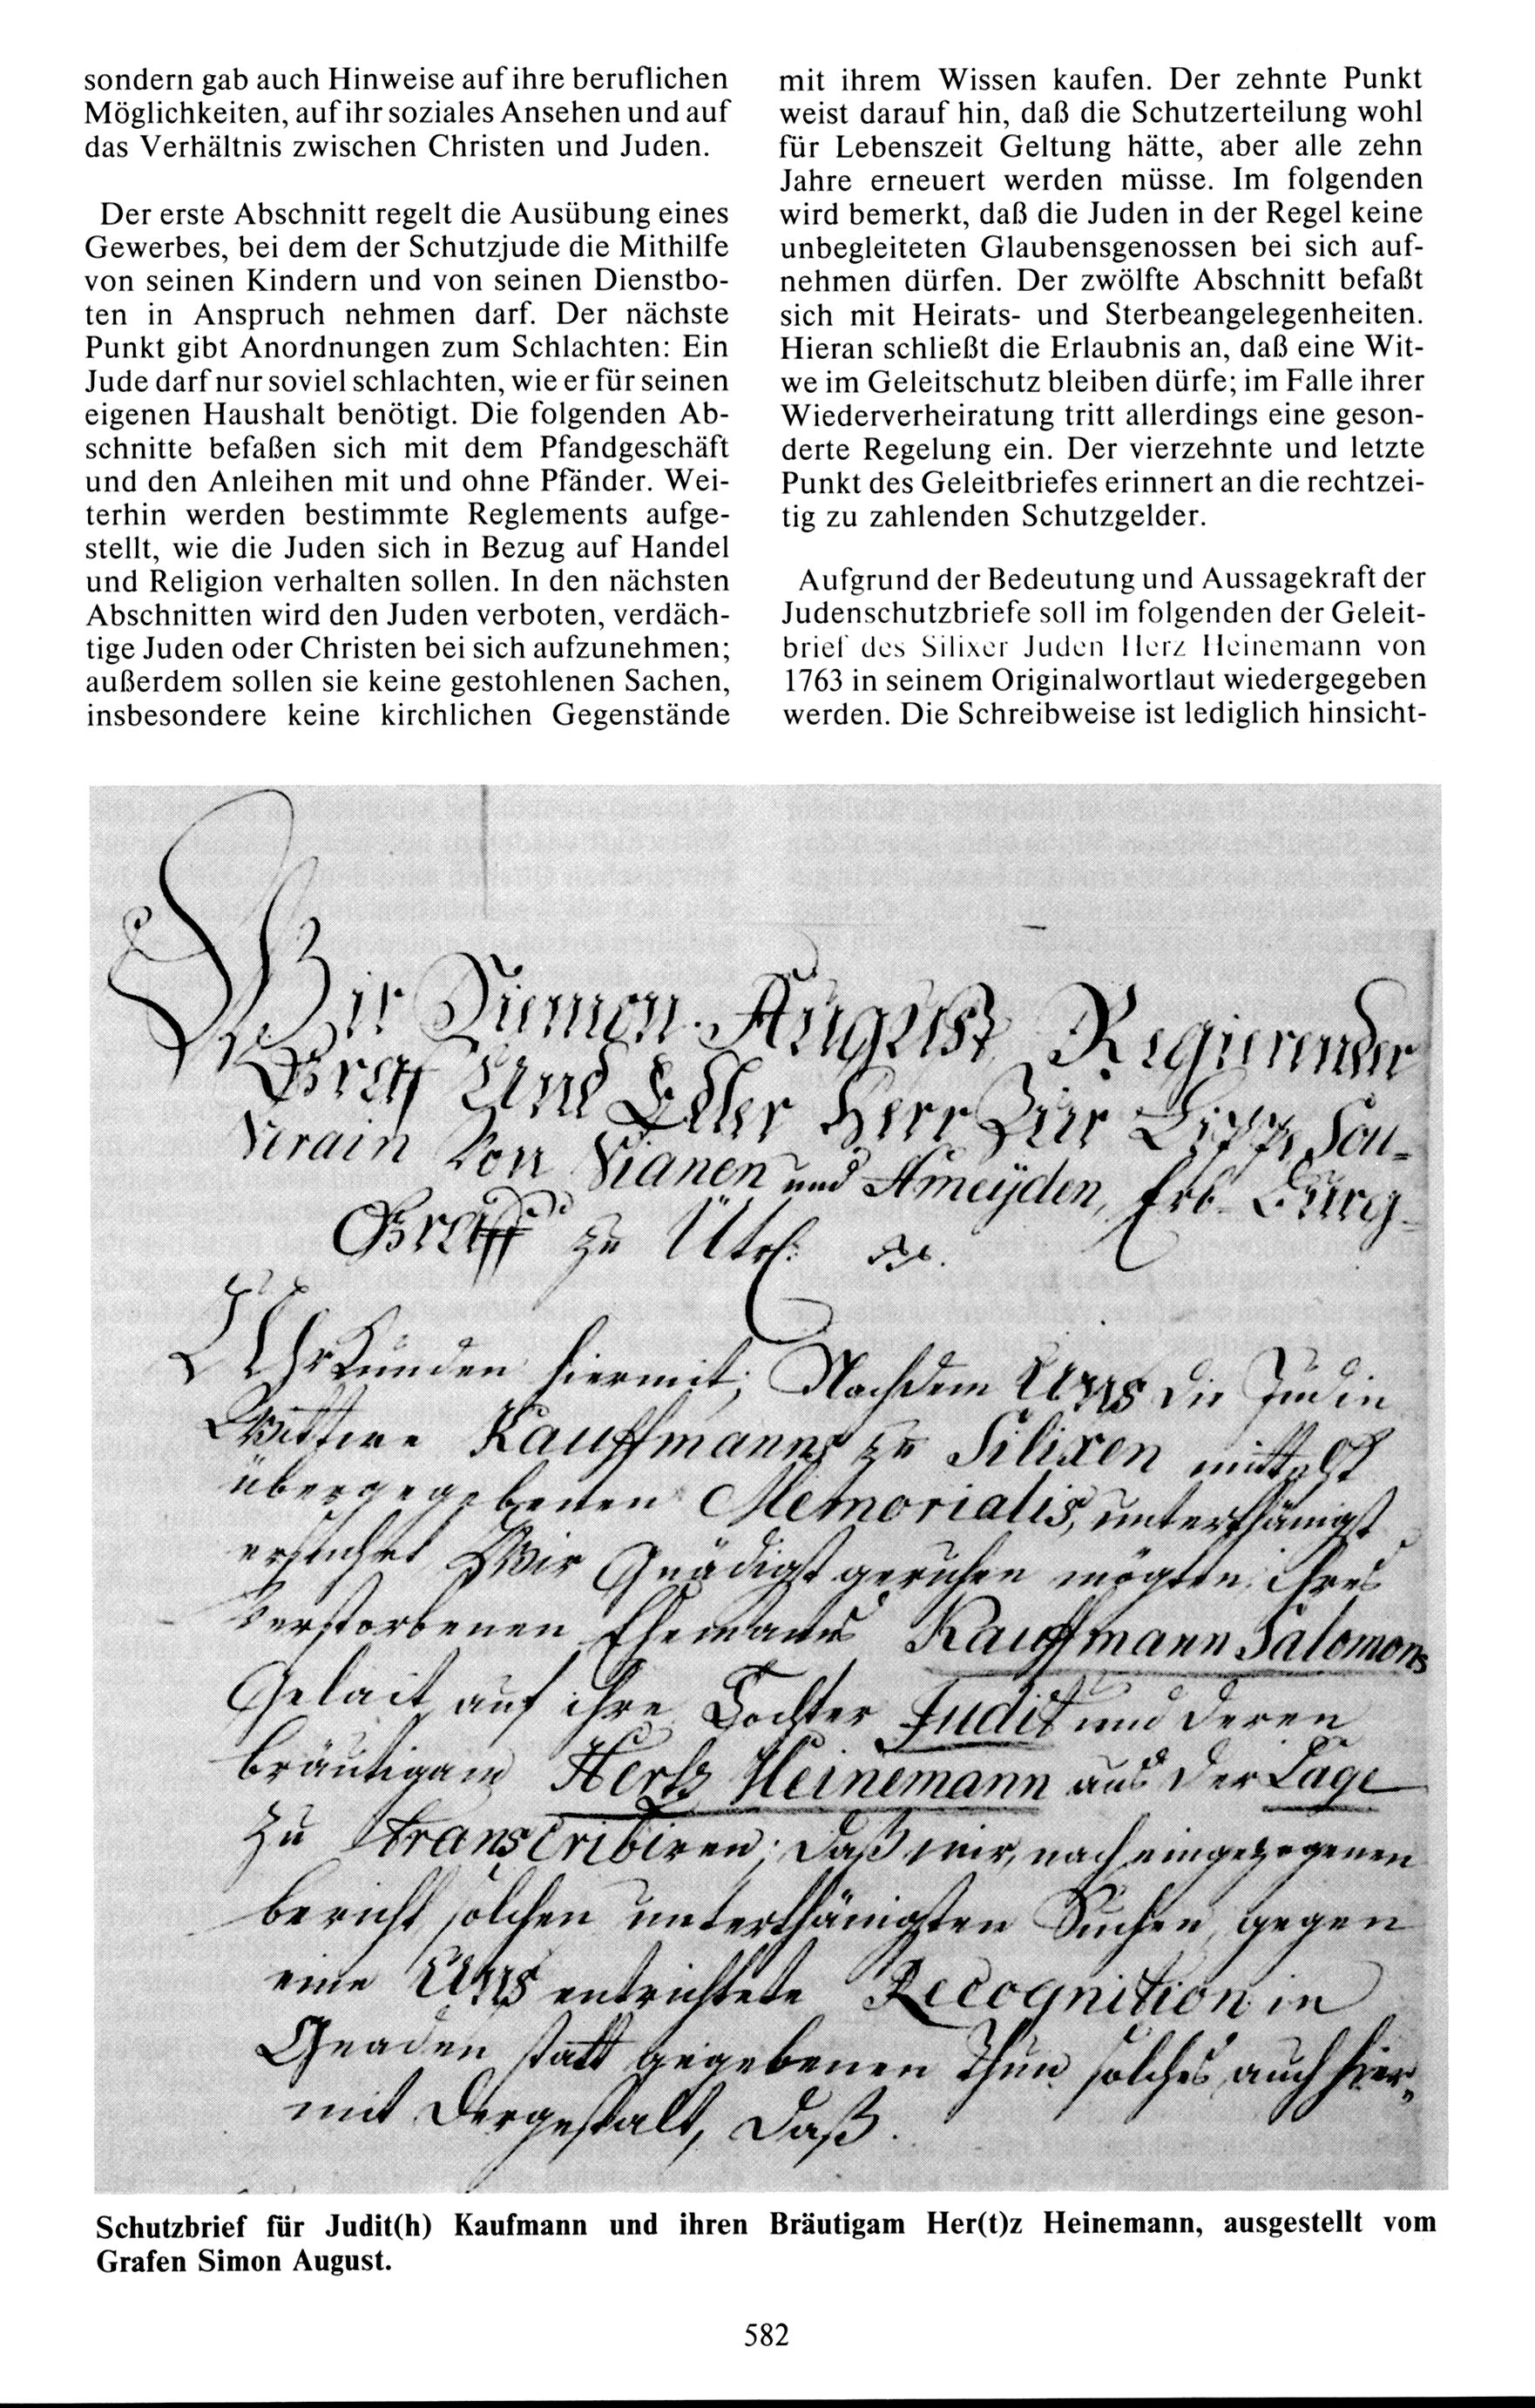 sondern gab auch Hinweise auf ihre beruflichen
Möglichkeiten, auf ihr soziales Ansehen und auf
das Verhältnis zwischen Christen und Juden.
Der erste Abschnitt regelt die Ausübung eines
Gewerbes, bei dem der Schutzjude die Mithilfe
von seinen Kindern und von seinen Dienstbo-
ten in Anspruch nehmen darf. Der nächste
Punkt gibt Anordnungen zum Schlachten: Ein
Jude darf nur soviel schlachten, wie er für seinen
eigenen Haushalt benötigt. Die folgenden Ab-
schnitte befaßen sich mit dem Pfandgeschäft
und den Anleihen mit und ohne Pfänder. Wei-
terhin werden bestimmte Reglements aufge-
stellt, wie die Juden sich in Bezug auf Handel
und Religion verhalten sollen. In den nächsten
Abschnitten wird den Juden verboten, verdäch-
tige Juden oder Christen bei sich aufzunehmen;
außerdem sollen sie keine gestohlenen Sachen,
insbesondere keine kirchlichen Gegenstände
mit ihrem Wissen kaufen. Der zehnte Punkt
weist darauf hin, daß die Schutzerteilung wohl
für Lebenszeit Geltung hätte, aber alle zehn
Jahre erneuert werden müsse. Im folgenden
wird bemerkt, daß die Juden in der Regel keine
unbegleiteten Glaubensgenossen bei sich auf-
nehmen dürfen. Der zwölfte Abschnitt befaßt
sich mit Heirats- und Sterbeangelegenheiten.
Hieran schließt die Erlaubnis an, daß eine Wit-
we im Geleitschutz bleiben dürfe; im Falle ihrer
Wiederverheiratung tritt allerdings eine geson-
derte Regelung ein. Der vierzehnte und letzte
Punkt des Geleitbriefes erinnert an die rechtzei-
tig zu zahlenden Schutzgelder.
Aufgrund der Bedeutung und Aussagekraft der
Judenschutzbriefe soll im folgenden der Geleit-
brief des Silixer Juden Herz Heinemann von
1763 in seinem Originalwortlaut wiedergegeben
werden. Die Schreibweise ist lediglich hinsicht-
Wir Siemon August Regierender
Graf Und Edler Herr Zur Lippe, Sou-
verain Von Vianen und Ameyden, Erb-Burg-
Graff zu Utr.
Uhrkunden hiermit; Nachdem Uns die Judin
Wittwe Kauffmanns zu Silixen mittelst
übergegebenen Memorialis, unterthänigst
ersuchet Wir Gnädigst geruhen mögten, ihres
verstorbenen Ehemanns Kauffmann Salomons
Gelait auf ihre Tochter Judit und deren
bräutigam Hertz Heinemann aus der Lage
zu transcribiren; daß wir, nach eingezogenen
bericht, solchen unterthänigsten Suchen, gegen
eine Uns entrichtete Recognition in
Gnaden statt gegebenen Thun solches auch hier-
mit dergestalt, daß.
Schutzbrief für Judit(h) Kaufmann und ihren Bräutigam Her(t)z Heinemann, ausgestellt vom
Grafen Simon August.
582